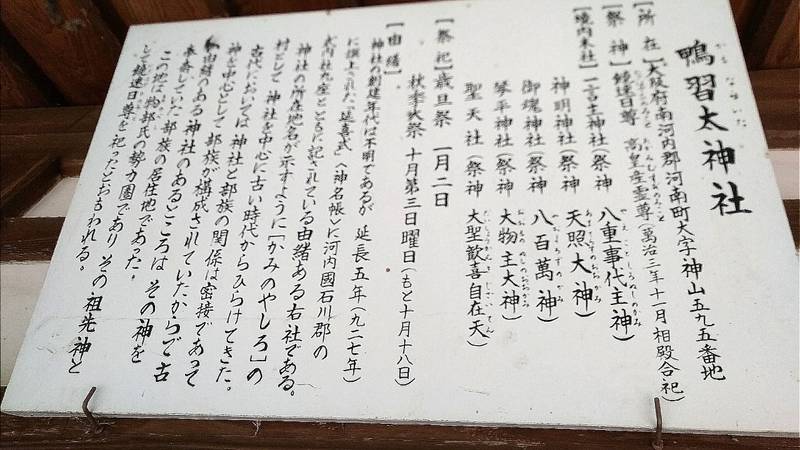 鴨習太神社
【所在】大阪府南河内郡河南町大字神山五九五番地
【祭神】饒速日尊 高皇産霊尊(萬治二年十一月相殿合祀)
【境内末社】一言主神社(祭神 八重事代主神)
神明神社(祭神 天照大神)
御魂神社(祭神 八百萬神)
琴平神社(祭神 大物主大神)
聖天社(祭神 大聖歓喜自在天)
【祭祀】歳旦祭 一月二日
秋季大祭 十月第三日曜日(もと十月十八日)
【由緒】
神社の創建年代は不明であるが 延長五年(九二七年)
に撰上された「延喜式」〈神名帳〉に河内國石川郡の
式内社九座とともに記されている由緒ある右社である。
神社の所在地名が示すように「かみのやしろ」の
村として 神社を中心に古い時代からひらけてきた。
古代においては 神社と部族の関係は密接であって
神を中心として部族が構成されていたからで古
い由緒のある神社のあるところは その神を
奉斎していた部族の居住地であった。
この地は物部氏の勢力圏であり その祖先神と
して饒速日尊を祀ったとおもわれる。